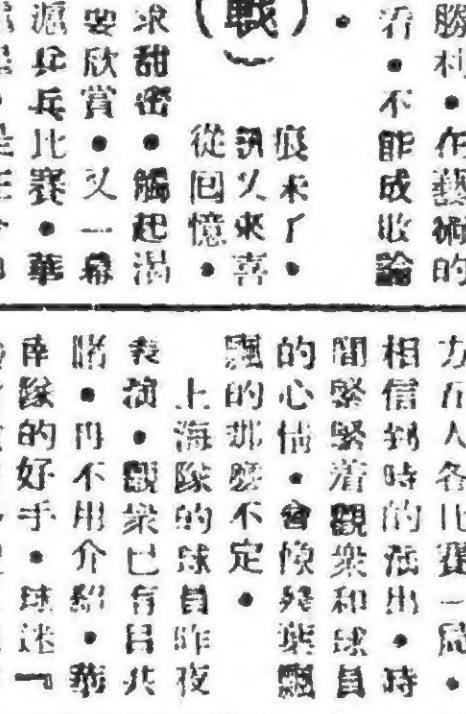 勝利・在藝術的
看・不能成敗論
(戰)
痕來了・
訊又來喜
從回憶・
求甜密・觸起渴
要欣賞・又一幕
滬乒乓比賽・華
力五人各比賽一局・
相信到時的演出・時
間緊緊着觀衆和球員
的心情・會像殘葉飄
飄的那麼不定・
上海隊的球員昨夜
表演・觀衆已有目共
睹・再不用介紹・華
南隊的好手・球迷『